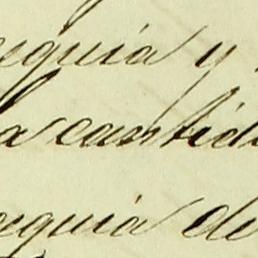 equia y
a cantid
equia de